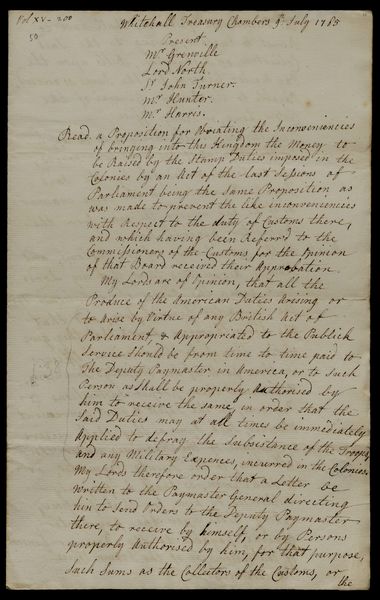 Vol XV - 200
50
Whitehall Treasury Chambers 9th July 1765
Present
Mr Grenville
Lord North.
Sr John Turner.
Mr Hunter.
Mr Harris.
Read a Proposition for Obviating the Inconveniencies
of bringing into this Kingdom the Money to
be Raised by the Stamp Duties imposed in the
Colonies by an Act of the last Sessions of
Parliament being the Same Proposition as
was made to prevent the like inconveniencies
with Respect to the duty of Customs there,
and which having been Referr'd to the
Commissioners of the Customs for the Opinion
of that Board received their Approbation.
My Lords are of Opinion, that all the
Produce of the American Duties Arising or
to Arise by Virtue of any British Act of
Parliament, & Appropriated to the Publick
Service should be from time to time paid to
The Deputy Paymaster in America, or to Such
Person as Shall be properly Authorised by
him to receive the same, in order that the
Said Duties may at all times be immediately
Applied to defray the Subsistance of the Troops,
and any Military Expences, incurred in the Colonies.
My Lords therefore order that a Letter be
Written to the Paymaster General directing
him to Send Orders to the Deputy Paymaster
there, to receive by himself, or by Persons
properly Authorised by him, for that purpose,
Such Sums as the Collectors of the Customs, or
the